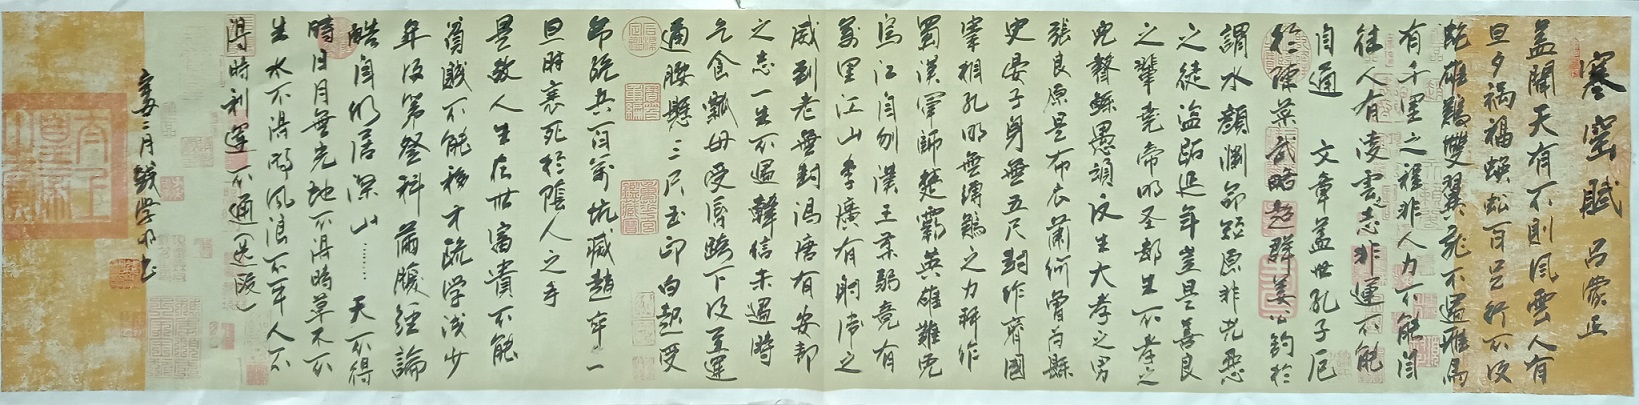 寒窑賦 吕蒙正
盖闻天有不測风雲人有
旦夕祸福蜈蚣百足行不及
蛇雄鷄雙翼飛不過鴉馬
有千里之程非人力不能自
往人有凌雲之志非運不能
自通 文章盖世孔子厄
於陳蔡武略超群姜公釣於
謂水顏渊命短原非凶恶
之徒盗跖延年豈是善良
之輩尧帝明圣却生不孝之
兒瞽鲧愚頑反生大孝之男
張良原是布衣蕭何曾為縣
吏晏子身無五尺封作齊國
宰相孔明無縛鷄之力拜作
蜀漢軍師楚霸英雄難免
烏江自刎漢王柔弱竟有
萬里江山李廣有射虎之
威到老無封馮唐有安邦
之志一生不遇韓信未遇時
乞食瓢母受辱胯下及至運
通腰懸三尺玉印白起受
命統兵百萬坑滅趙卒一
旦时衰死於陰人之手
是故人生在世富貴不能
貧賤不能移才疏学浅少
年及第登科滿腹經論
皓首仍居深山……天不得
時日月無光地不得時草木不
生水不得時风浪不平人不
得時利運不通(选段)
辛丑二月 书